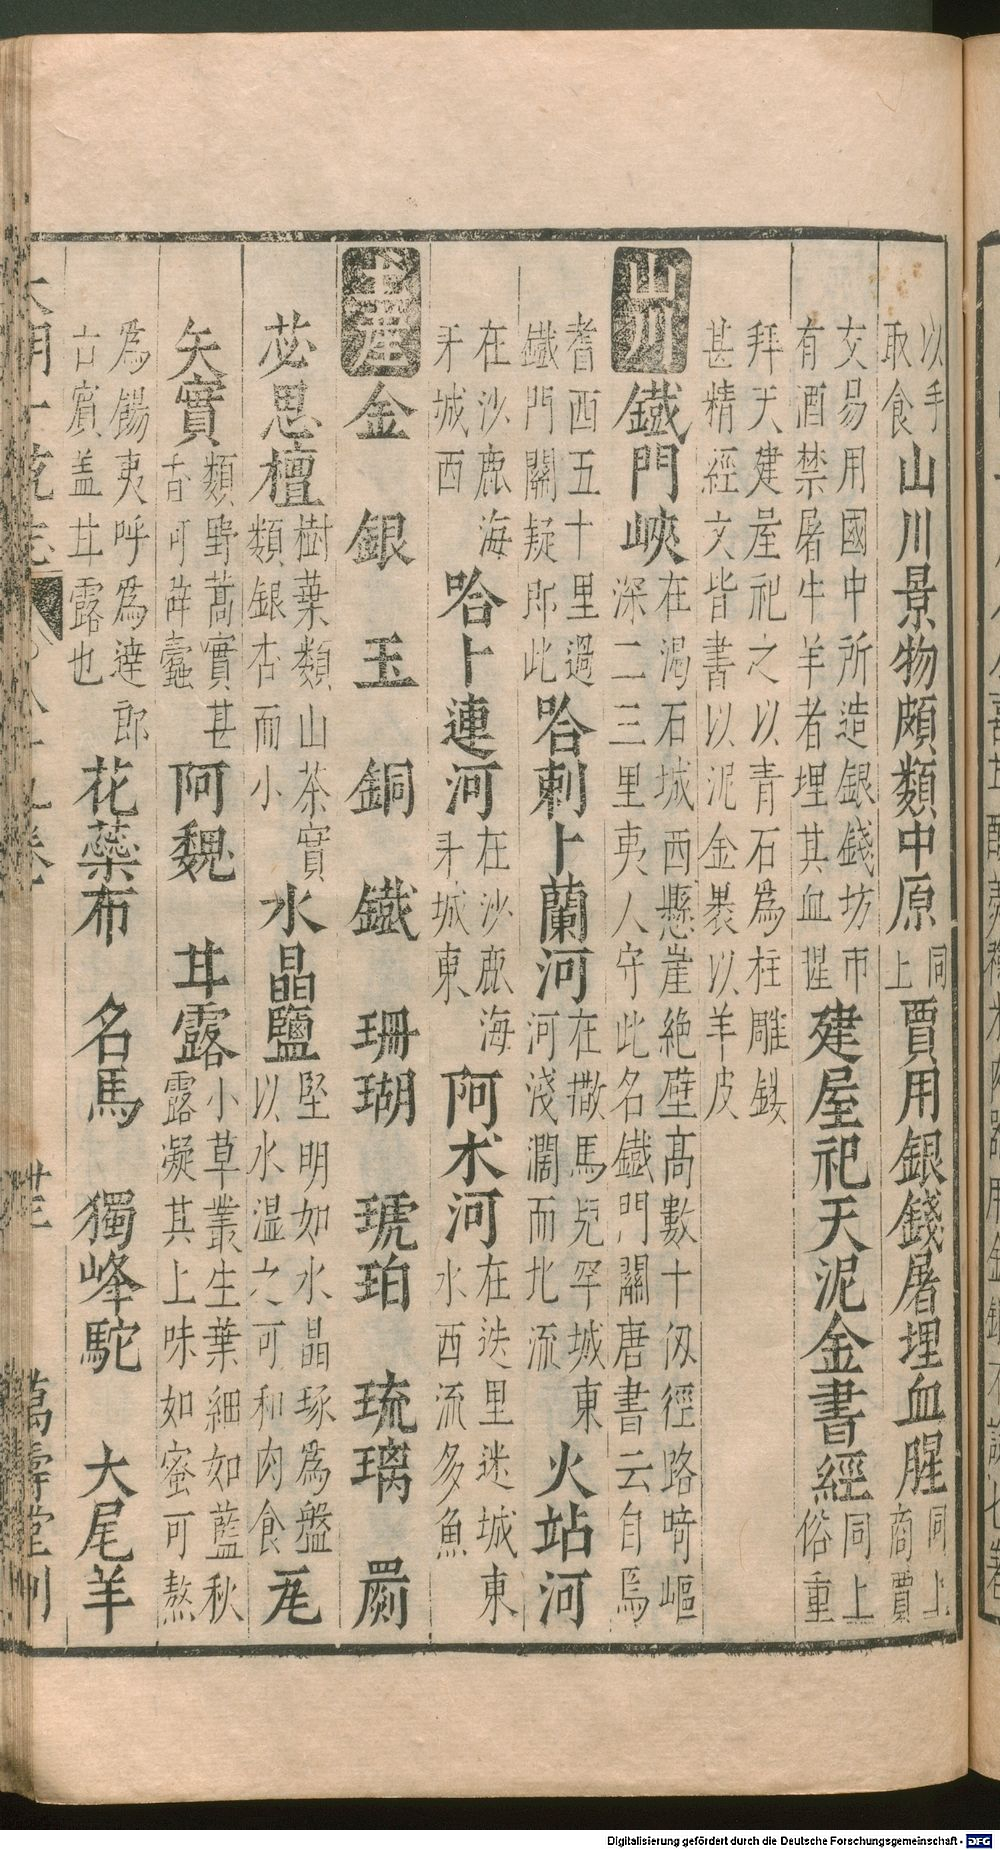 以手
取食山川景物頗類中原同
上賈用銀錢屠埋血腥同上
商賈
交易用國中所造銀錢坊市
有酒禁屠牛羊者埋其血腥建屋祀天泥金書經同上
俗重
拜天建屋祀之以青石為柱雕鏤
甚精經文皆書以泥金裹以羊皮
山川鐵門峽在渴石城西懸崖絶壁高數十仭徑路﨑嶇
深二三里夷人守此名鐵門關唐書云自焉
耆西五十里過
鐵門關疑即此哈剌卜蘭河在撒馬兒罕城東
河淺濶而北流火站河
在沙鹿海
牙城西哈卜連河在沙鹿海
牙城東阿术河在迭里迷城東
水西流多魚
土産金 銀 玉 銅 鐵 珊瑚 琥珀 琉璃 罽
苾思檀樹葉類山茶實
類銀杏而小水晶鹽堅明如水晶琢為盤
以水濕之可和肉食
矢實類野蒿實甚
香可辟蠧阿魏 甘露小草叢生葉細如藍秋
露凝其上味如蜜可熬
為餳夷呼為達郎
古賓盖甘露也花蘂布 名馬 獨峰駝 大尾羊
大明一統志 萬壽堂刊
Digitalisierung gefördert durch die Deutsche Forschungsgemeinschaft - DFG